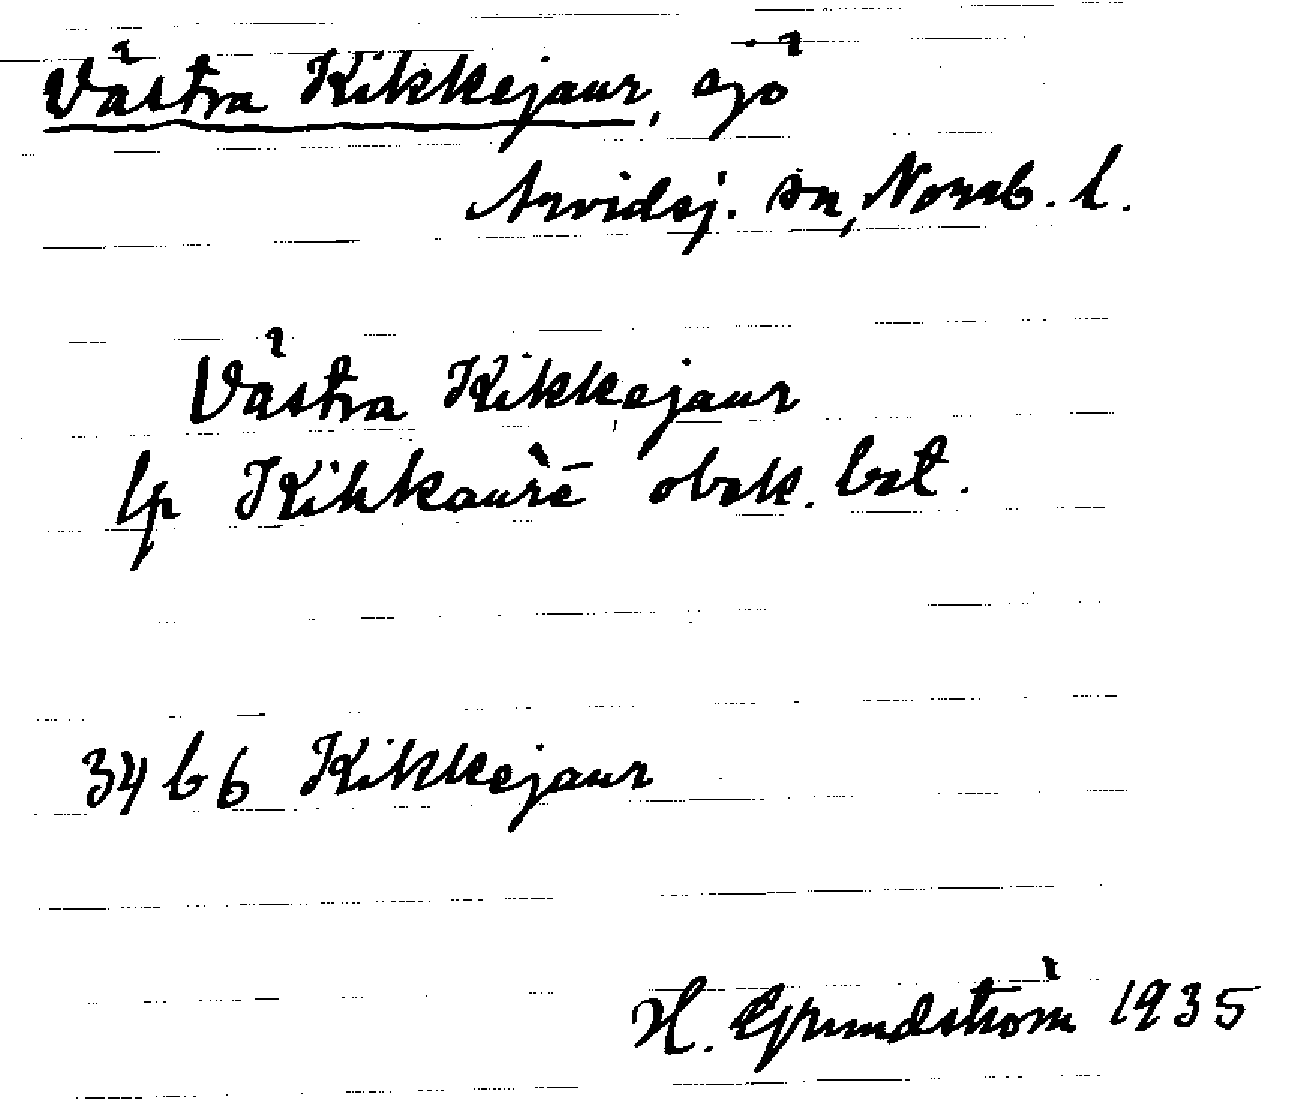 Västra Kikkejaur, sjö
Arvidsj. sn, Norrb. l.
Västra Kikkejaur
lp Kikkaurē obek. bet.
34 b 6 Kikkejaur
H. Grundström 1935